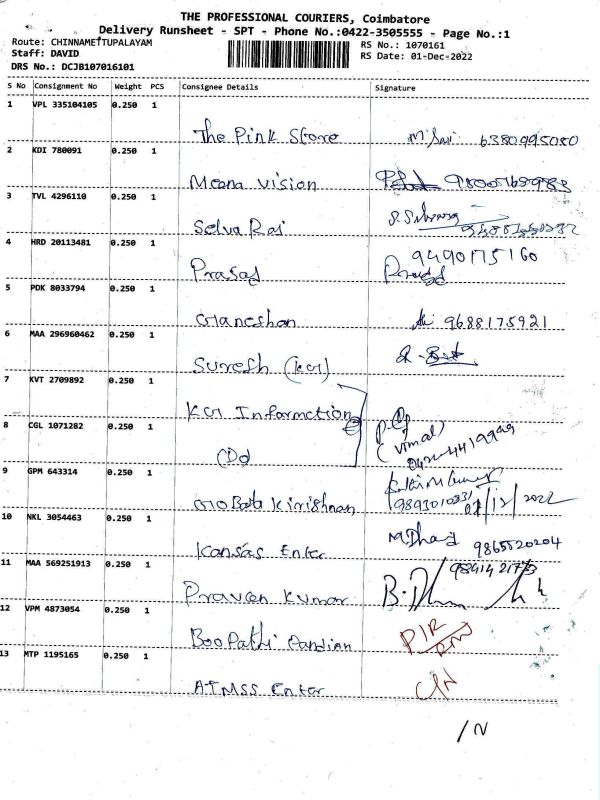 THE PROFESSIONAL COURIERS, Coimbatore
Delivery Runsheet - SPT - Phone No.:0422-3505555 - Page No.:1
Route: CHINNAMETTUPALAYAM
RS No.: 1070161
Staff: DAVID
RS Date: 01-Dec-2022
DRS No.: DCJB107016101
S No Consignment No Weight PCS Consignee Details Signature
1 VPL 335104105 0.250 1
The Pink Store 6380995080
2 KDI 780091 0.250 1
Meena Vision
3 TVL 4296110 0.250 1
Selva Raj
4 HRD 20113481 0.250 1
9490175160
Prasad Prasad
5 PDK 8033794 0.250 1
Ganeshan 9688175921
6 MAA 296960462 0.250 1
Suresh (KGI)
7 KVT 2709892 0.250 1
KGI Information
8 CGL 1071282 0.250 1
(Vimal)
0422-4419999
9 GPM 643314 0.250 1
9893010831
Kirishnan /12/2022
10 NKL 3054463 0.250 1
Kansas Enter 9865520204
11 MAA 569251913 0.250 1
Praveen Kumar
12 VPM 4873054 0.250 1
BooPathi Pandian
13 MTP 1195165 0.250 1
ATMSS Enter C/N
/N